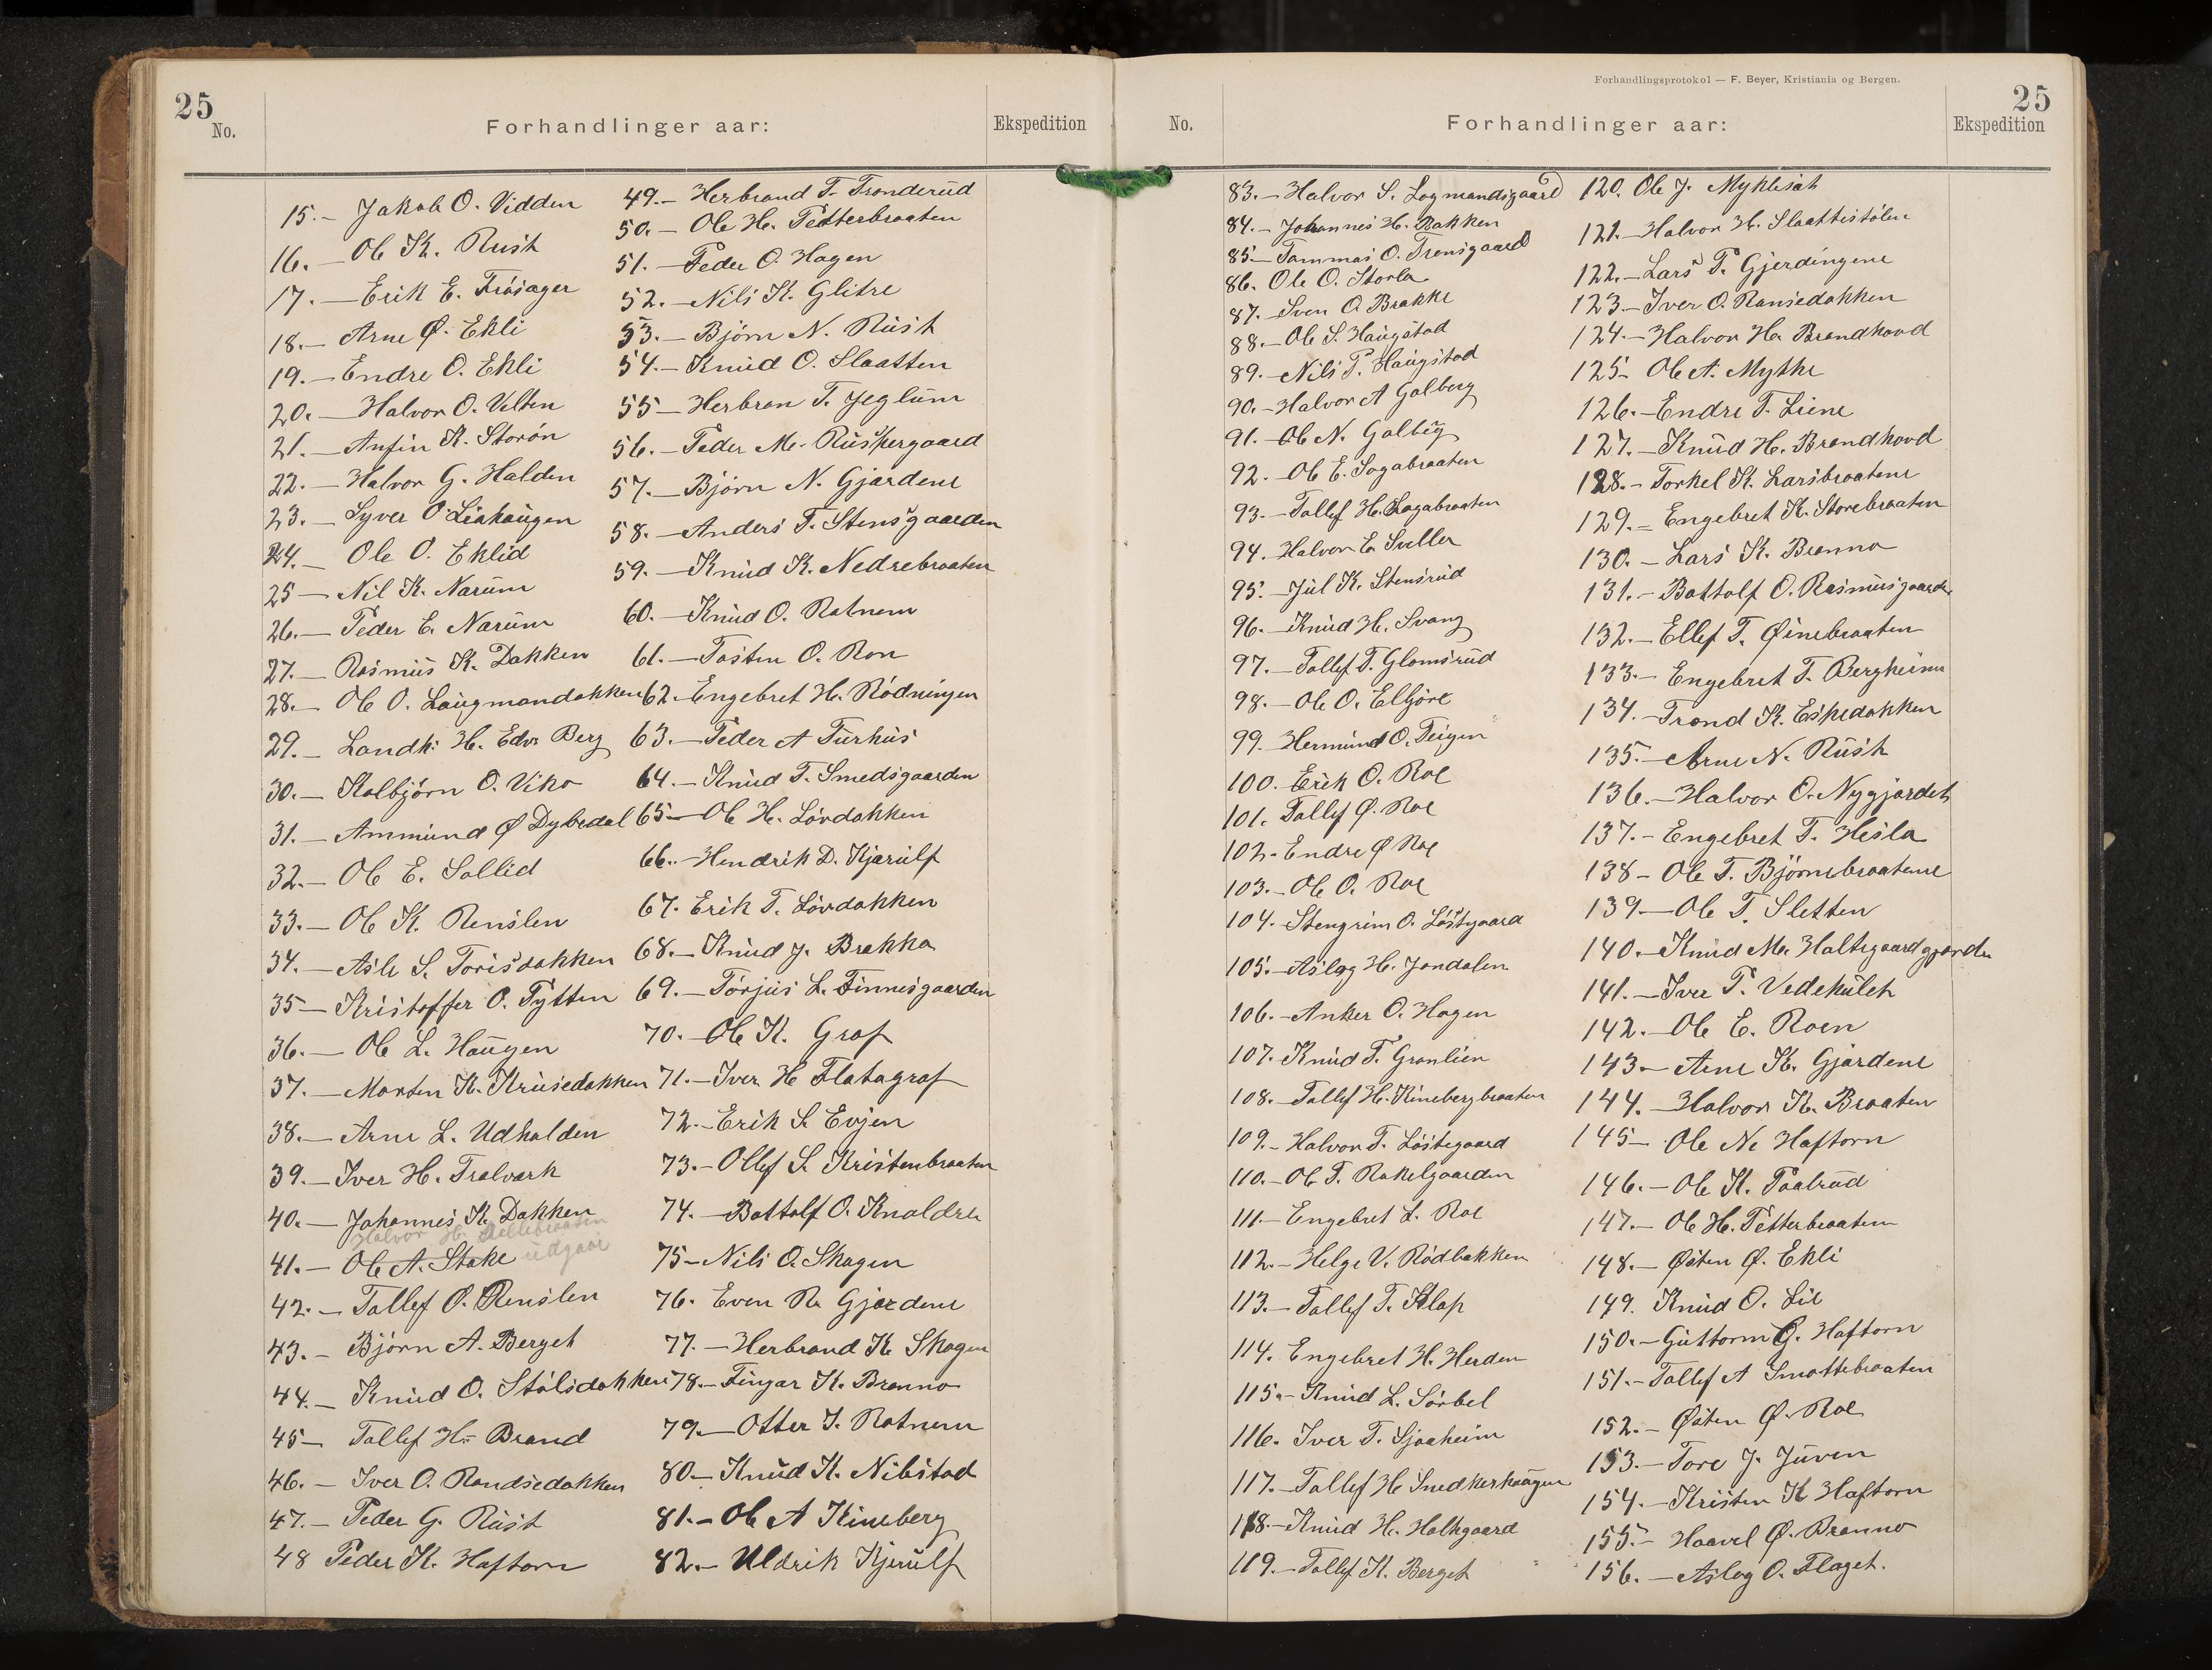 25
No.
Forhandlinger aar:
Ekspedition
15.- Jakob O. Vidden
16.- Ole K. Rust
17.- Erik E. Frösager
18.- Arne Ø. Ekli
19.- Endre O. Ekli
20.- Halvor O. Velten
21.- Anfin K. Storön
22.- Halvor G. Halden
23.- Syver O. Liahaugen
24.- Ole O. Eklid
25- Nil K. Narum
26.- Peder E. Narum
27.- Rasmus K. Dokken
28.- Ole O. Laugmandokken
29.- Landh. H. Edv. Berg
30.- Kolbjörn O. Viko
31.- Ammund Ø Dybedal
32.- Ole E. Sollid
33.- Ole K. Renslen
34.- Asle S. Torisdokken
35- Kristoffer O. Tytten
36.- Ole L. Haugen
37.- Morten K. Krusedokken
38.- Arne L. Udhalden
39.- Iver H. Tralvark
40.- Johannes K. Dokken
Halvor H.
41.- Ole A. Stake udgaar
42.- Tollef O. Renslen
43.- Björn A. Berget
44.- Knud O. Stölsdokken
45- Tollef H. Brand
46.- Iver O. Randsedokken
47.- Peder G. Rust
48 Peder K. Haftorn
49.- Herbrand T. Tronderud
50.- Ole H. Petterbraaten
51.- Peder O. Hagen
52.- Nils K. Glitre
53.- Björn N. Rust
54.- Knud O. Slaatten
55- Herbran T. Jeglum
56.- Peder M. Ruspergaard
57.- Björn N. Gjardene
58.- Anders T. Stensgaarden
59.- Knud K. Nedrebraaten
60.- Knud O. Rotnem
61.- Tosten O. Ron
62.- Engebret H. Rödningen
63.- Peder A Turhus
64.- Knud T. Smedsgaarden
65- Ole H. Lövdokken
66.- Hendrik D. Kjarulf
67. Erik T. Lövdokken
68.- Knud J. Brakka
69.- Torjus L. Finnesgaarden
70.- Ole K. Graf
71.- Iver H Flatagraf
72.- Erik S. Evjen
73.- Ollef S. Kristenbraaten
74.- Bottolf O. Knaldre
75- Nils O. Skagen
76. Even R. Gjardene
77.- Herbrand K Skogen
78.- Fingar K. Branno
79.- Otter I. Rotnem
80.- Knud K. Nibstad
81.- Ole A Kineberg
82.- Uldrik Kjerulf
Forhandlingsprotokol — F. Beyer, Kristiania og Bergen.
25
No.
Forhandlinger aar:
Ekspedition
83.- Halvor S. Logmandsgaard
84.- Johannes H. Bakken
85.- Tommas O. Trensgaard
86. Ole O. Storla
87.- Sven O. Brakke
88.- Ole S. Haugstad
89.- Nils P. Haugstad
90.- Halvor A Golberg
91.- Ole N. Golbeg
92.- Ole E. Sagabraaten
93.- Tollef H. Sagabraaten
94. Halvor E. Sveller
95.- Jul K. Stensrud
96.- Knud H. Svang
97.- Tollef T. Glomsrud
98.- Ole O. Elgjore
99. Hermund O. Teigen
100. Erik O. Roe
101. Tollef Ø. Roe
102.- Endre Ø Roe
103.- Ole O. Roe
104.- Stengrim O. Löstgaard
105.- Aslag H. Jondalen
106.- Anker O. Hagen
107.- Knud T. Granlien
108.- Tollef H. Kinebergbraaten
109.- Halvor T. Löstegaard
110.- Ole T. Rakelgaarden
111.- Engebret L. Roe
112.- Helge V. Rödbakken
113.- Tollef T. Klop
114. Engebret H. Herden
115.- Knud L. Sörbel
116. Iver T. Sjaaheim
117.- Tollef H Snedkerhaugen
118.- Knud H. Haltegaard
119.- Tollef K. Berget
120. Ole J. Myklisat
121.- Halvor H. Slaattestölen
122.- Lars T. Gjerdingene
123- Iver O. Ransedokken
124.- Halvor H. Brandhovd
125- Ole A. Mythe
126.- Endre T. Liene
127.- Knud H. Brandhovd
128.- Torkel K. Larsbraatene
129.- Engebret K. Storebraaten
130.- Lars K. Branno
131.- Bottolf O. Rasmusgaarden
132.- Ellef T. Øinebraaten
133.- Engebret T. Bergheim
134.- Trond K. Espedokken
135.- Arne N. Rust
136.- Halvor O. Nygjardet
137.- Engebret T. Hesla
138- Ole T. Björnebraatene
139.- Ole T. Sletten
140.- Knud M. Haltegaardgjorde
141.- Iver T. Vedekulet
142.- Ole E. Roen
143.- Arne K. Gjardene
144.- Halvor K. Braaten
145- Ole N. Haftorn
146.- Ole K. Paalrud
147.- Ole H. Petterbraaten
148.- Østen Ø. Ekli
149. Knud O. Lie
150.- Guttorm G. Haftorn
151.- Tollef A Smottebraaten
152.- Østen Ø. Roe
153.- Tore J. Juven
154.- Kristen K Haftorn
155.- Haavel Ø. Branno
156.- Aslag O. Flaget.